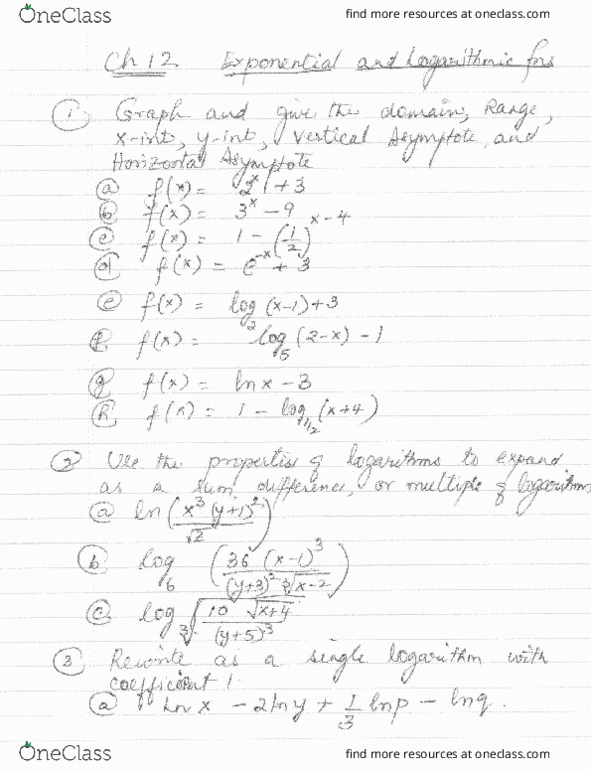 OneClass find more resources at oneclass.com
Ch 12 Exponential and Logarithmic fns
① Graph and give the domain, Range,
x-int, y-int, Vertical Asymptote, and
Horizontal Asymptote
ⓐ f(x) = 2^x + 3
ⓑ f(x) = 3^x - 9
ⓒ f(x) = 1 - (1/2)^(x-4)
ⓓ f(x) = e^-x + 3
ⓔ f(x) = log_2 (x-1) + 3
ⓕ f(x) = log_5 (2-x) - 1
ⓖ f(x) = ln x - 3
ⓗ f(x) = 1 - log_1/2 (x+4)
② Use the properties of logarithms to expand
as a sum, difference, or multiple of logarithms
ⓐ ln (x^3 (y+1)^2 / √z)
ⓑ log_6 (36 (x-1)^3 / (y+3)^2 ∛(x-2))
ⓒ log ∛(10 √(x+4) / (y+5)^3)
③ Rewrite as a single logarithm with
coefficient 1.
ⓐ ln x - 2 ln y + 1/3 ln p - ln q.
OneClass find more resources at oneclass.com